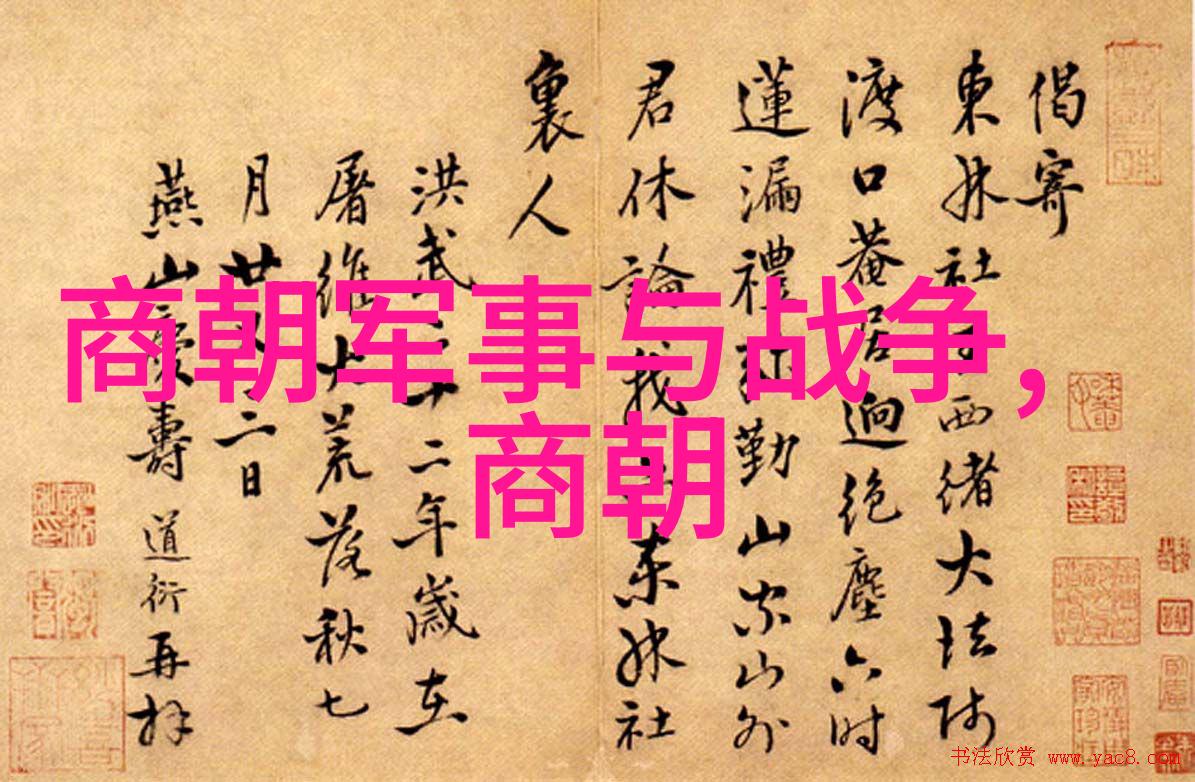 商朝军事与战争，
商朝
偈寄
東林社西緒大法師
渡口菴居迥絕塵六時
蓮漏禮勤山家山外
君休論我東林社
裏人
洪武十二年歲在
屠維大荒落秋七
月廿二日
燕山慶壽道衍再拜
书法欣赏 www.yac8.com